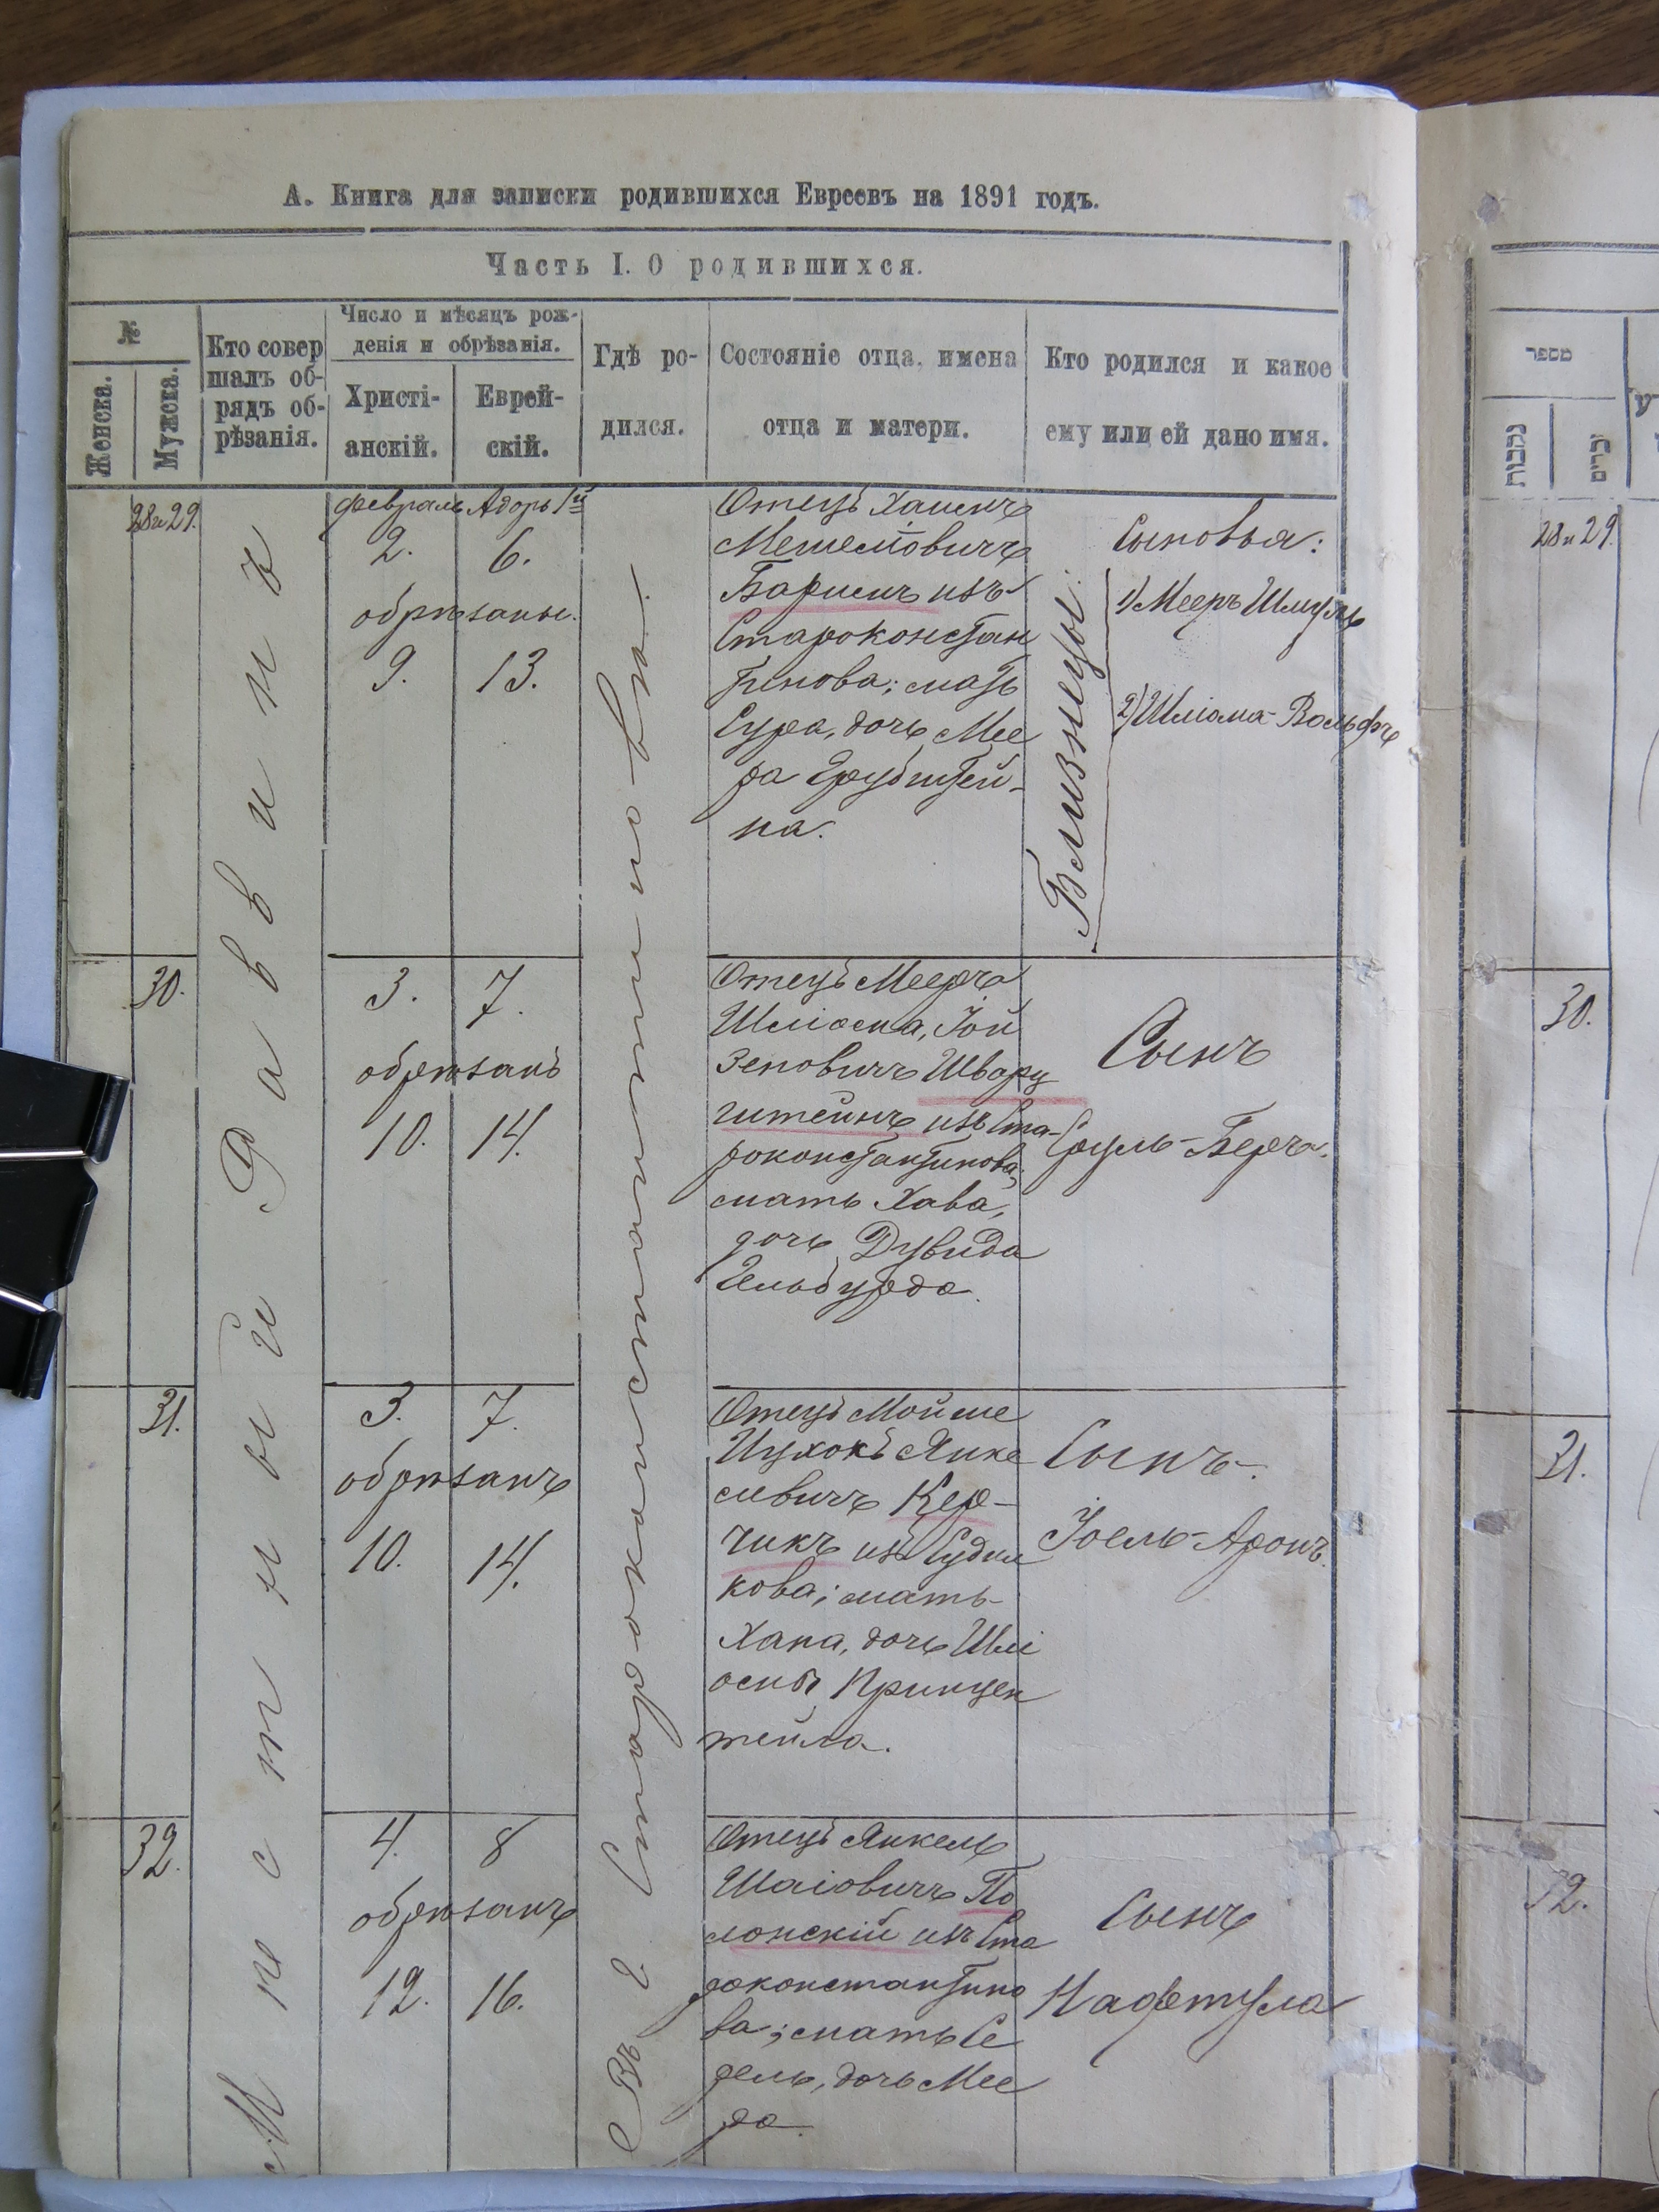 А. Книга для записки родившихся Евреевъ на 1891 годъ.
Часть I. О родившихся.
№
Женска.
Мужска.
Кто совер
шалъ об-
рядъ об-
рѣзанія.
Число и мѣсяцъ рож-
денія и обрѣзанія.
Христі-
анскій.
Еврей-
скій.
Гдѣ ро-
дился.
Состояніе отца, имена
отца и матери.
Кто родился и какое
ему или ей дано имя.
Мѣстный Раввинъ
Въ г. Староконстантиновѣ.
28 и 29.
Февраль Адоръ 1й
2. 6.
обрѣзаны.
9. 13.
Отецъ Хаимъ
Мешелiовичъ
из
Староконстан
тинова; мать
Сура, дочь Мее
ра Грубштей-
на.
Близнецы:
Сыновья:
1) Мееръ Шмуль
2) Шліома-Вольфъ
30.
3. 7.
обрѣзанъ
10. 14.
Отецъ Мееръ
Шліома, Іой
зеповичъ Шварц
штейнъ изъ Ста-
роконстантинова;
мать Хава,
дочь Дувида
Сынъ
Сруль-Беръ.
31.
3. 7.
обрѣзанъ
10. 14.
Отецъ Мойше
Ицхокъ Янке
левичъ Кер-
чикъ изъ Судил
кова; мать
Хана, дочь Шлі
омы Принцен
тейла.
Сынъ.
Іоель-Аронъ.
32.
4. 8
обрѣзанъ
12. 16.
Отецъ Янкель
Шаіовичъ По
лонскій изъ Ста
роконстантино
ва; мать Се
дель, дочь Мее
ра.
Сынъ
Нафтула
מספר
נקבות
זכרים
28 и 29.
30.
31.
32.